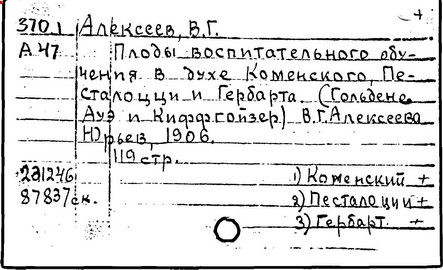 +
370.1 Алексеев, В.Г.
А 47 Плоды воспитательного обу-
чения в духе Коменского, Пе-
сталоцци и Гербарта. (Гольдене
Ауэ и Киффгойзер) В.Г. Алексеева
Юрьев, 1906.
119 стр.
231246 1) Коменский +
87837сн. 2) Песталоцци +
3) Гербарт. +